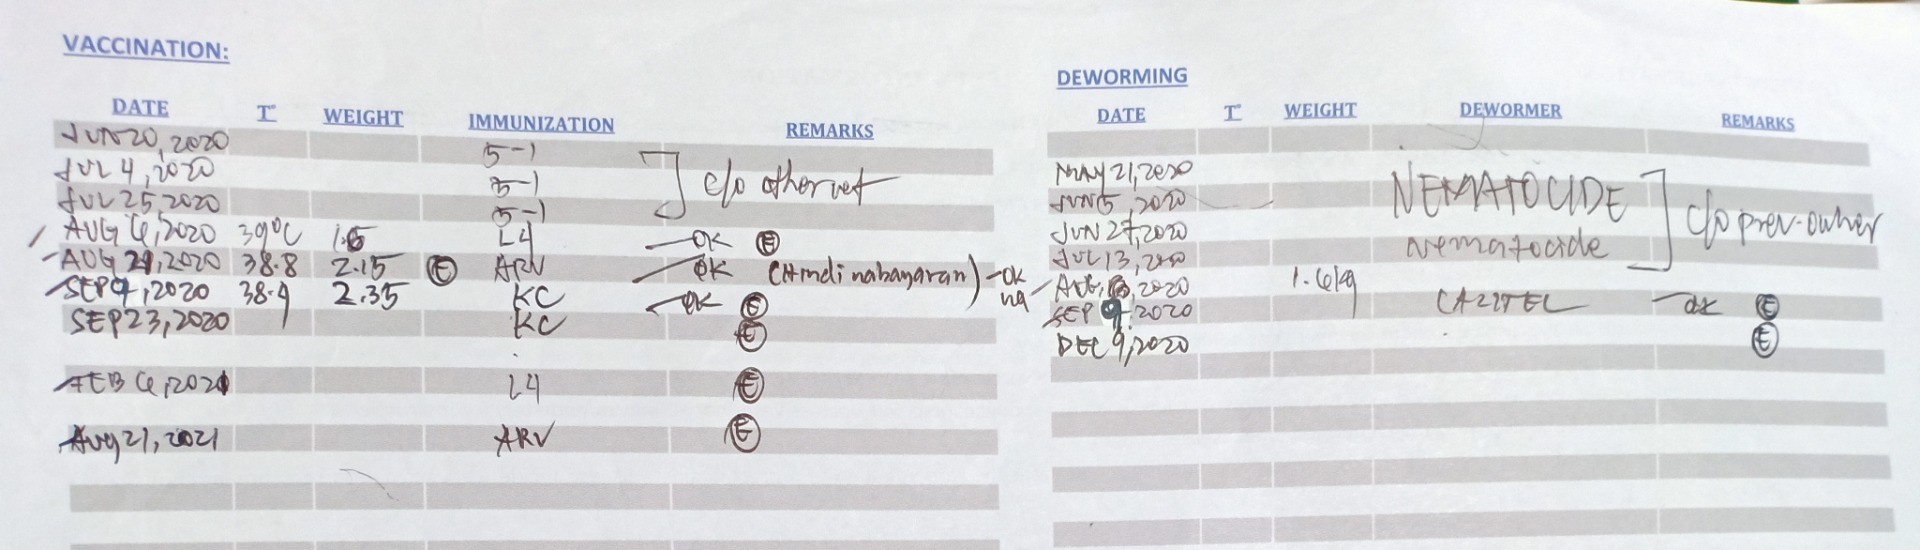 VACCINATION:
DATE T° WEIGHT IMMUNIZATION REMARKS
JUN 20, 2020 5-1
JUL 4, 2020 5-1 c/o other vet
JUL 25, 2020 5-1
AUG 6, 2020 39°C 1.6 L4 OK E
AUG 29, 2020 38.8 2.15 E ARV OK (Hindi nabayaran) - OK na
SEP 9, 2020 38.9 2.35 KC OK E
SEP 23, 2020 KC E
FEB 6, 2021 L4 E
Aug 21, 2021 ARV E
DEWORMING
DATE T° WEIGHT DEWORMER REMARKS
MAY 21, 2020
JUN 5, 2020 NEMATOCIDE c/o prev. owner
JUN 27, 2020
JUL 13, 2020 nematocide
AUG 2020 1.6kg
SEP 9, 2020 CAZITEL OK E
DEC 9, 2020 E